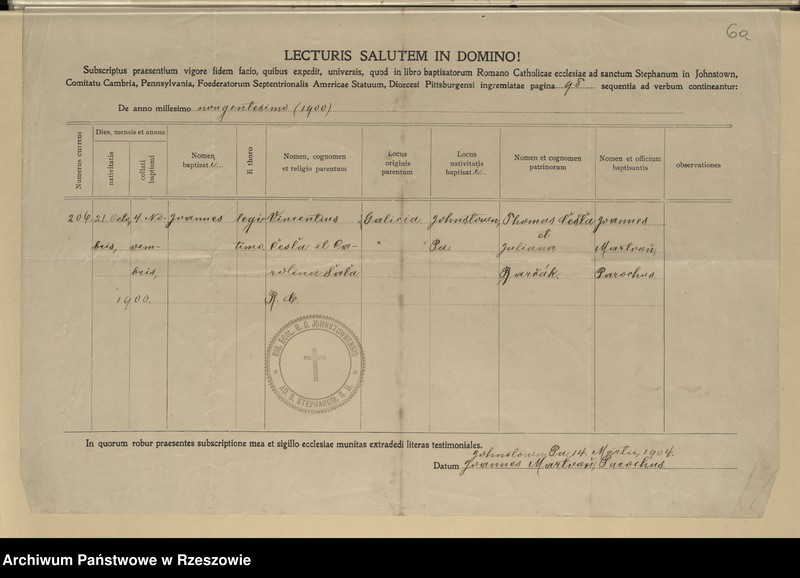 6a
LECTURIS SALUTEM IN DOMINO!
Subscriptus praesentium vigore fidem facio, quibus expedit, universis, quod in libro baptisatorum Romano Catholicae ecclesiae ad sanctum Stephanum in Johnstown,
Comitatu Cambria, Pennsylvania, Foederatorum Septentrionalis Americae Statuum, Dioecesi Pittsburgensi ingremiatae pagina 98 sequentia ad verbum contineantur:
De anno millesimo nongentesimo (1900)
Numerus currens
Dies, mensis et annus
nativitatis
collati baptismi
Nomen baptisat.i...
E thoro
Nomen, cognomen et religio parentum
Locus originis parentum
Locus nativitatis baptisat.i...
Nomen et cognomen patrinorum
Nomen et officium baptisantis
observationes
206 21. Octo 4. No- Joannes legi- Vincentius Galicia Johnstown, Thomas Cesla Joannes
bris, vem- timo Cesla et Ca- Pa. et Juliana Martvoň,
bris, rolina Sala Barčák. Parochus
1900. R. C.
SIG. ECCL. R. C. JOHNSTOWNENSIS
AD S. STEPHANUM, R. H.
In quorum robur praesentes subscriptione mea et sigillo ecclesiae munitas extradedi literas testimoniales.
Johnstown, Pa., 14. Martii, 1904.
Datum Joannes Martvoň, Parochus
Archiwum Państwowe w Rzeszowie